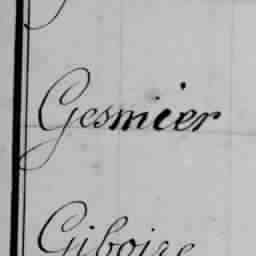 Gesmier
Giboire